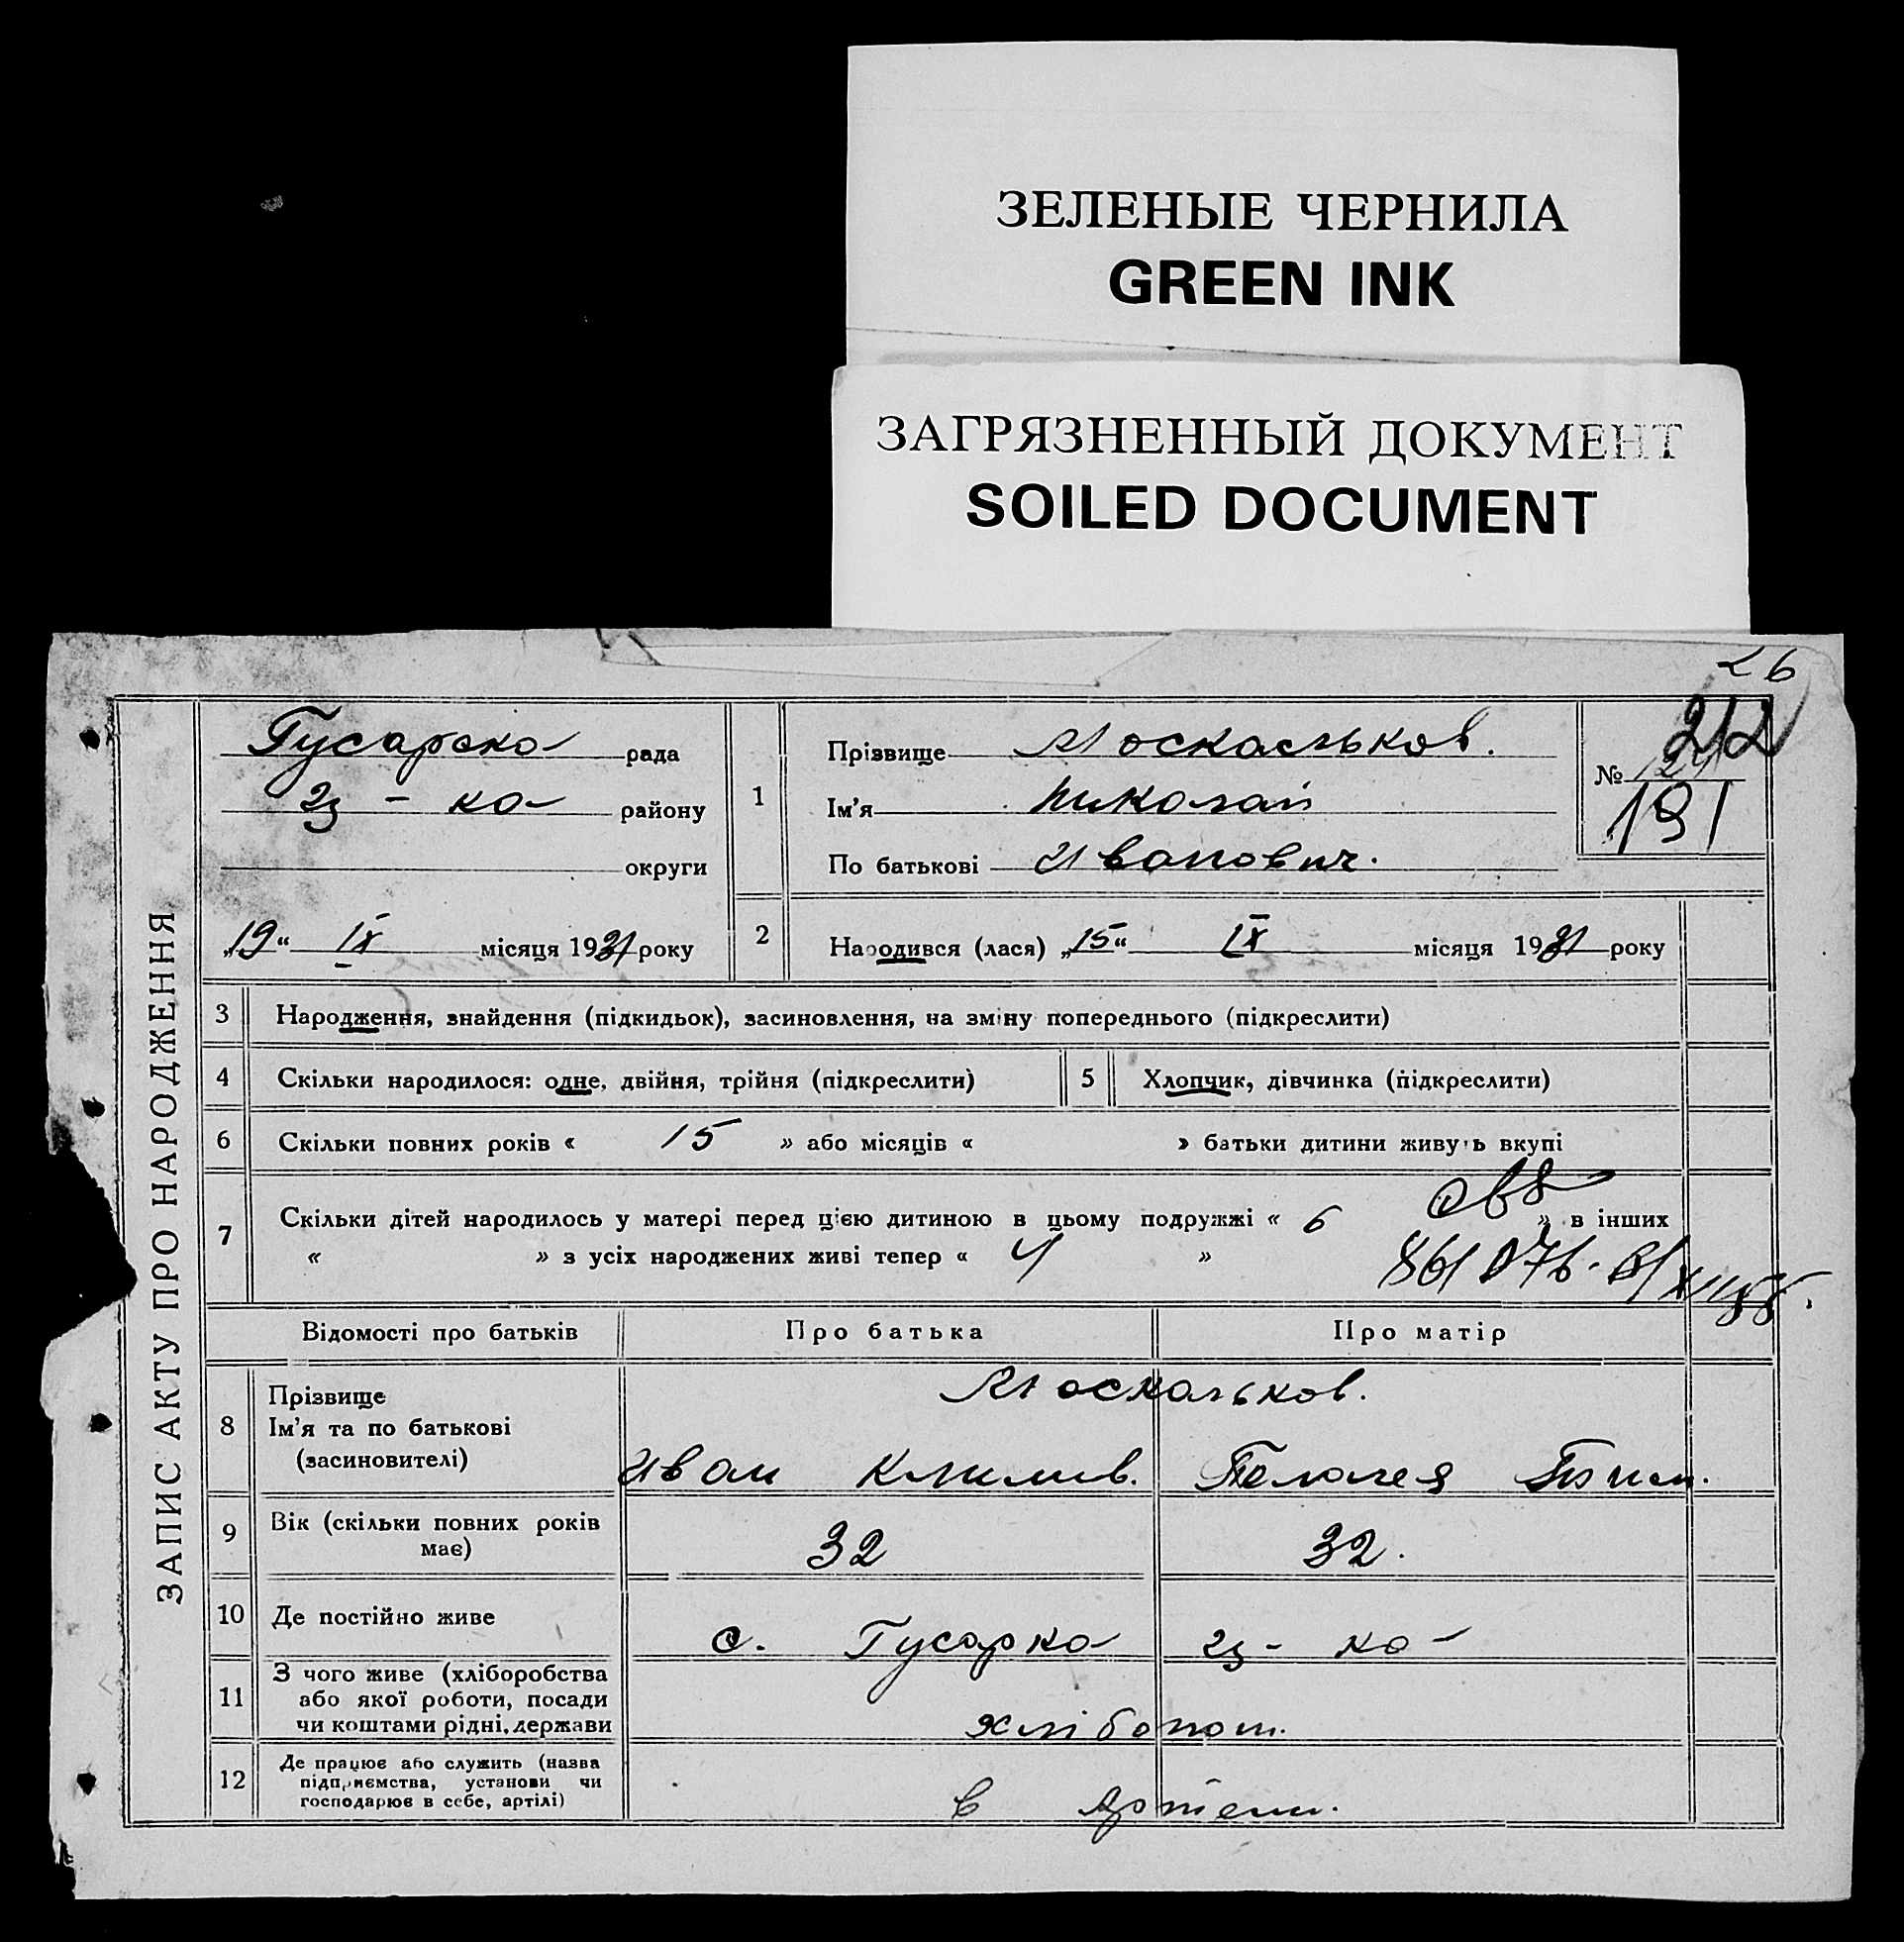 ЗЕЛЕНЫЕ ЧЕРНИЛА
GREEN INK
ЗАГРЯЗНЕННЫЙ ДОКУМЕНТ
SOILED DOCUMENT
26
ЗАПИС АКТУ ПРО НАРОДЖЕННЯ
Гусарска рада
району
округи
„19“ IX місяця 1931 року
1
Прізвище Москальков.
Ім'я Николай
По батькові Иванович.
№
212
191
2
Народився (лася) „15“ IX місяця 1931 року
3 Народження, знайдення (підкидьок), засиновлення, на зміну попереднього (підкреслити)
4 Скільки народилося: одне, двійня, трійня (підкреслити)
5 Хлопчик, дівчинка (підкреслити)
6 Скільки повних років « 15 » або місяців « » батьки дитини живуть вкупі
7 Скільки дітей народилось у матері перед цією дитиною в цьому подружжі « 6 » в інших
« » з усіх народжених живі тепер « 4 »
Відомості про батьків Про батька Про матір
8 Прізвище
Ім'я та по батькові
(засиновителі)
Москальков.
Иван Климов. Пелагея
9 Вік (скільки повних років має) 32 32.
10 Де постійно живе с. Гусарка
11 З чого живе (хліборобства
або якої роботи, посади
чи коштами рідні, держави
хлібопаш.
12 Де працює або служить (назва
підприємства, установи чи
господарює в себе, артілі)
в Артели.